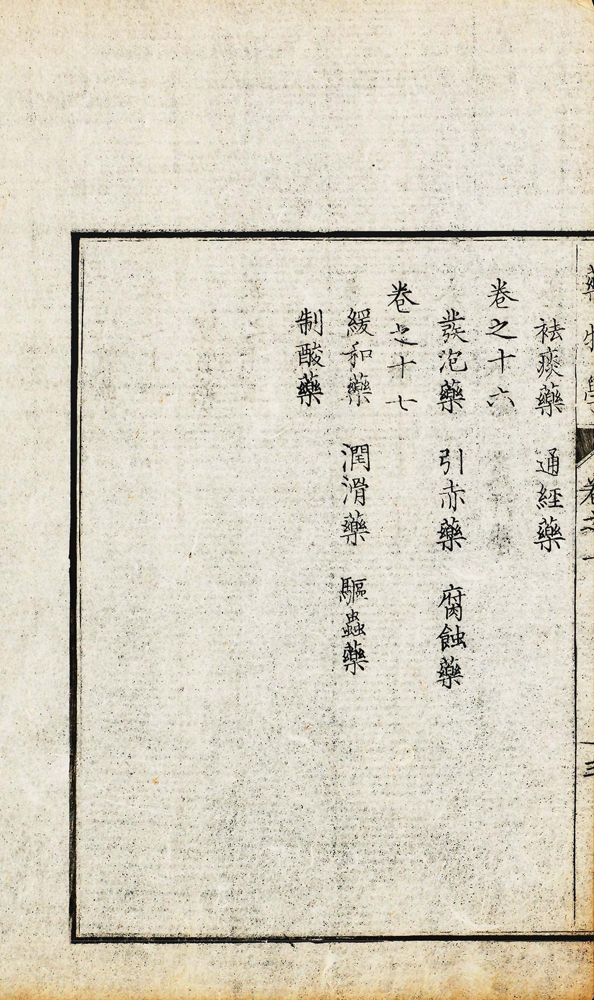 藥物學
卷之一
三
祛痰藥 通經藥
卷之十六
發泡藥 引赤藥 腐蝕藥
卷之十七
緩和藥 潤滑藥 驅蟲藥
制酸藥